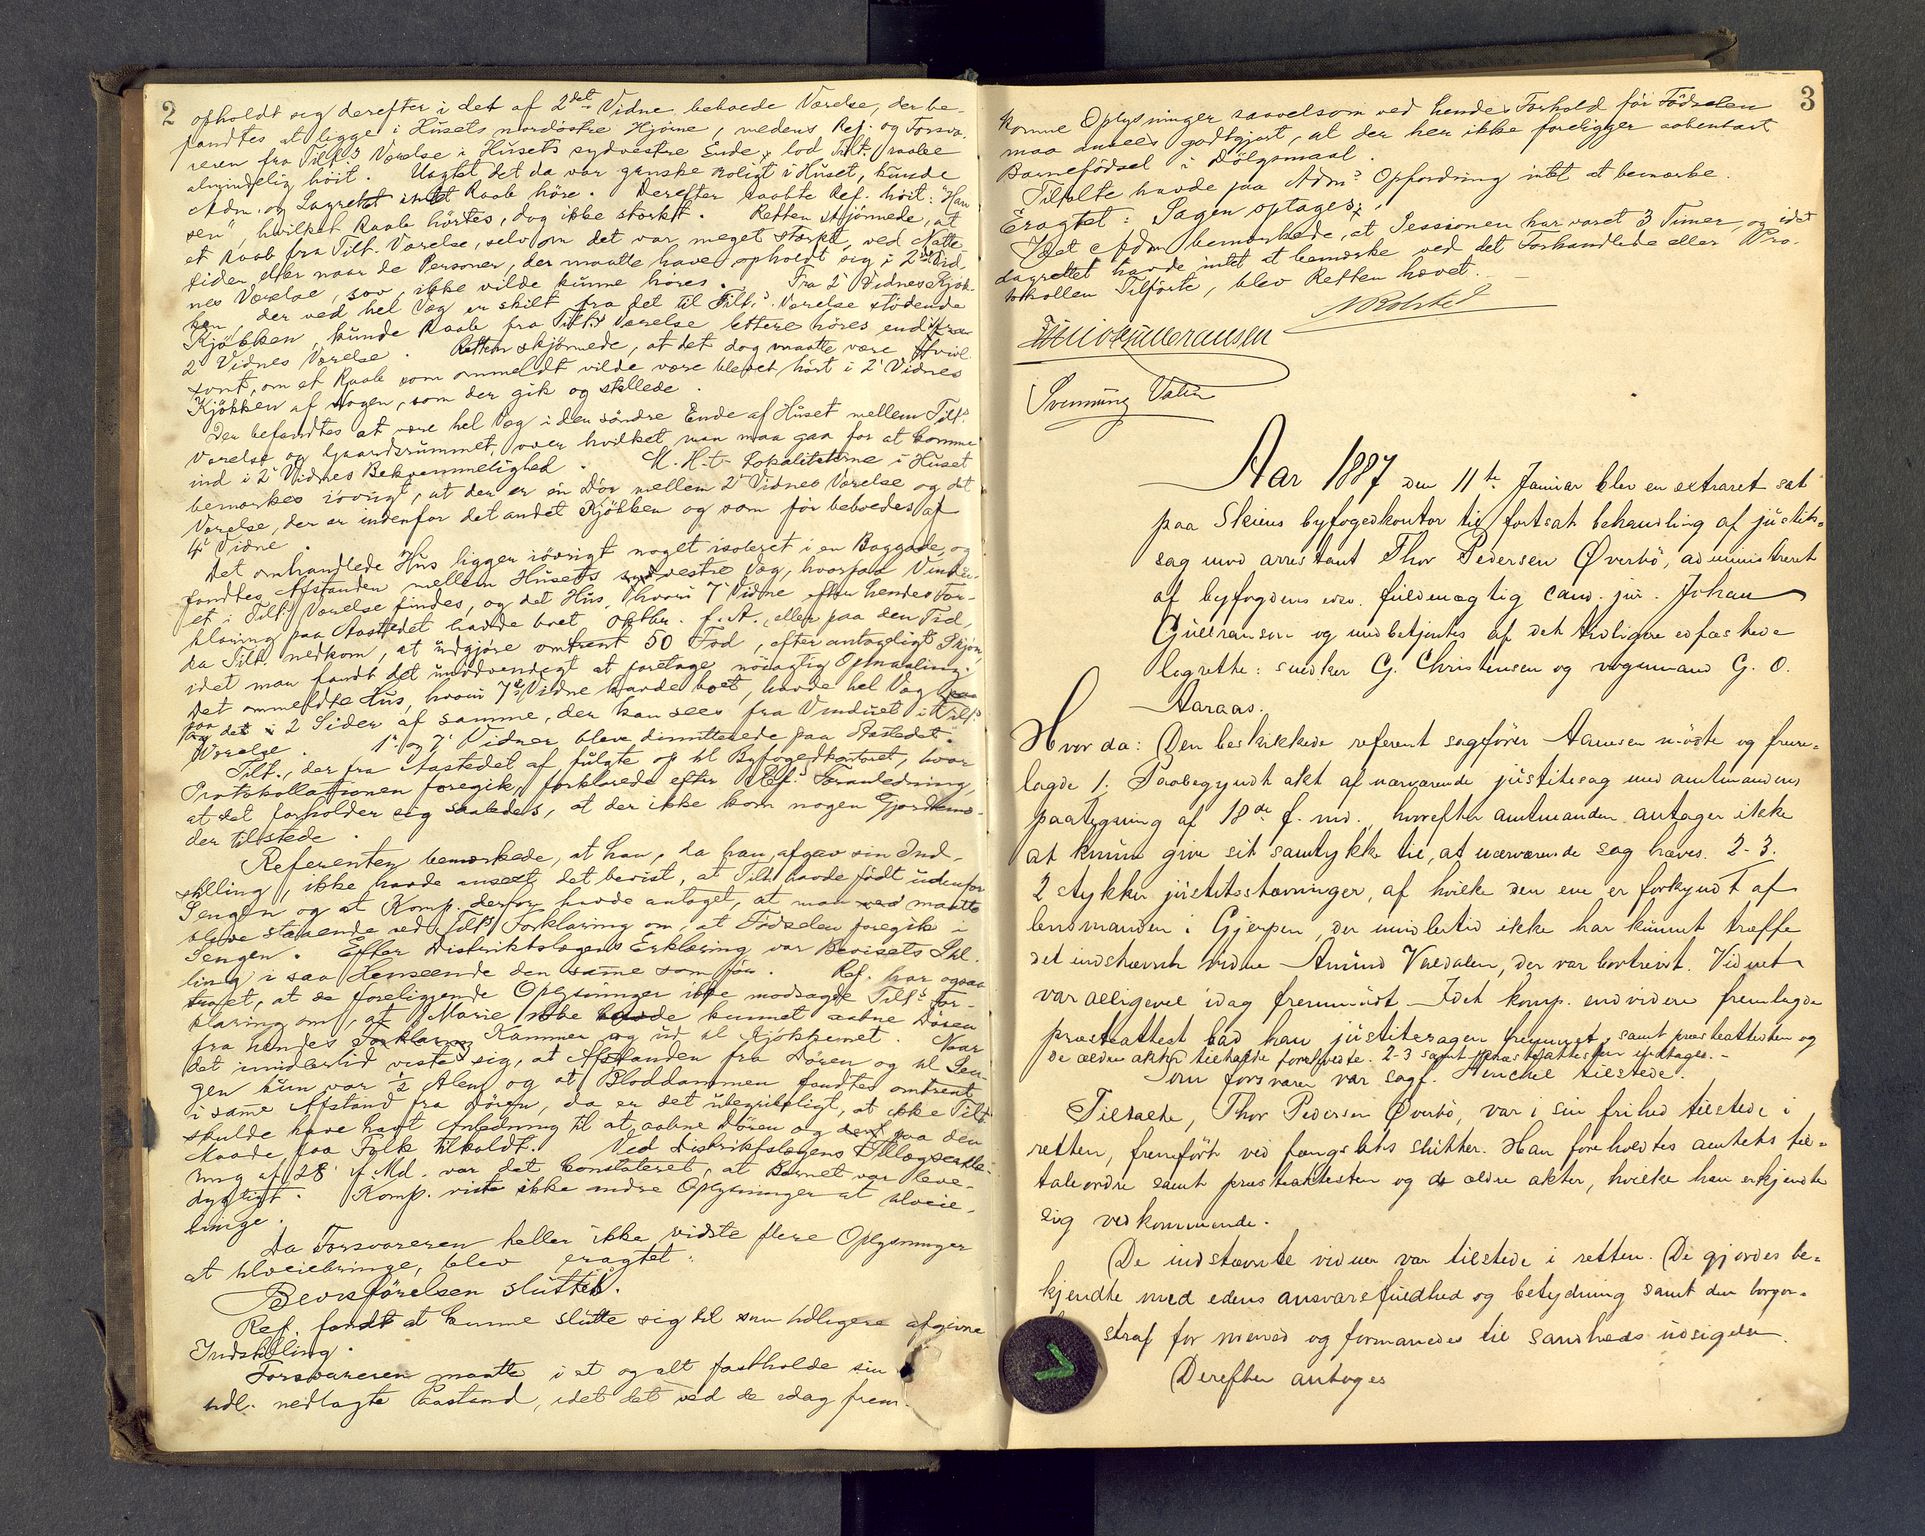 2
opholdt sig derefter i det af 2det Vidne beboede Værelse, der be-
fandtes at ligge i Husets nordöstre Hjörne, medens Ref. og Forsva-
reren fra Tilt.s Værelse i Husets sydvestre Ende, lod Tilt. raabe
almindelig höit. Uagtet det da var ganske roligt i Huset, kunde
Adm. og Lagrettet intet Raab höre. Derefter raabte Ref. höit: "Han
sen", hvilket Raab hörtes, dog ikke stærkt. Retten skjönnede, at
et Raab fra Tilt. Værelse, selv om det var meget stærkt, ved Natte-
tider, eller naar de Personer, der maatte have opholdt sig i 2det Vid
nes Værelse, sov, ikke vilde kunne höres. Fra 2' Vidnes Kjök-
ken der ved hel Væg er skilt fra det til Tilt.s Værelse stödende
Kjökken, kunde Raab fra Tilt.s Værelse lettere höres end fra
2' Vidnes Værelse. Retten skjönnede, at det dog maatte være tvivl
somt, om et Raab som ommeldt vilde være blevet hört i 2' Vidnes
Kjökken af nogen, som der gik og stellede.
Der befandtes at være hel Væg i den söndre Ende af Huset mellem Tilts
Værelse og Gaardsrummet, over hvilket man maa gaa for at komme
ind i 2' Vidnes Bekvemmelighed. M. H. t. Lokaliteterne i Huset
bemærkes iövrigt, at der er en Dör mellem 2' Vidnes Værelse og det
Værelse, der er indenfor det andet Kjökken og som för beboedes af
4' Vidne.
Det omhandlede Hus ligger iövrigt noget isoleret i en Baggade, og
fandtes Afstanden mellem Husets sydvestre Væg, hvorpaa Vindu-
et i Tilts Værelse findes, og det Hus, hvori 7' Vidne efter hendes For-
klaring paa Aastedet havde boet Oktbr. f. A., eller paa den Tid,
da Tilt. nedkom, at udgjöre omtrent 50 Fod, efter antageligt Skjön,
idet man fandt det unödvendigt at foretage nöiagtig Opmaaling.
Det ommeldte Hus, hvori 7de Vidne havde boet, havde hel Væg
paa de 2 Sider af samme, der kan sees fra Vinduet i Tilts
Værelse. 1' og 7' Vidner bleve dimitterede paa Aastedet.
Tilt., der fra Aastedet af fulgte op til Byfogedkontoret, hvor
Protokollationen foregik, forklarede efter Ref.s Foranledning,
at det forholder sig saaledes, at der ikke kom nogen Gjordemo-
der tilstede.
Referenten bemærkede, at han, da han afgav sin Ind-
stilling, ikke havde anseet det bevist, at Tilt. havde födt udenfor
Sengen og at Komp. derfor havde antaget, at man maatte
blive staaende ved Tilts Forklaring om, at Födselen foregik i
Sengen. Efter Distriktslægens Erklæring var Bevisets Stil-
ling i saa Henseende den samme som för. Ref. har ogsaa
troet, at de foreliggende Oplysninger ikke modsagde Tilts For-
klaring om, at Marie ikke havde kunnet aabne Dören
fra hendes Kammer og ud til Kjökkenet. Naar
det imidlertid viste sig, at Afstanden fra Dören og til Sen-
gen kun var 1/2 Alen og at Bloddammen fandtes omtrent
i samme Afstand fra Dören, da er det ubegribeligt, at ikke Tilt.
skulde have havt Anledning til at aabne Dören og paa den
Maade faa Folk tilkaldt. Ved Distriktslægens Tillægserklæ-
ring af 28' f. Md. var det konstateret, at Barnet var leve-
dygtigt. Komp. viste ikke andre Oplysninger at tilveie-
bringe.
Da Forsvareren heller ikke vidste flere Oplysninger
at tilveiebringe, blev eragtet:
Bevisförelsen sluttet.
Ref. fandt at kunne slutte sig til sin tidligere afgivne
Indstilling.
Forsvareren maatte i et og alt fastholde sin
tidl. nedlagte Paastand, idet det ved de idag frem-
3
komne Oplysninger saavelsom ved hendes Forhold för Födselen
maa ansees godtgjort, at der her ikke foreligger aabenbart
Barnefödsel i Dölgsmaal.
Tiltalte havde paa Adm.s Opfordring intet at bemærke.
Eragtet: Sagen optages.
Idet Adm bemærkede, at Sessionen har varet 3 Timer, og idet
Lagrettet havde intet at bemærke ved det Forhandlede eller Pro-
tokollen Tilförte, blev Retten hævet.
Svennung Valin
Aar 1887 den 11te Januar blev en extraret sat
paa Skiens byfogedkontor til fortsat behandling af justits-
sag mod arrestant Thor Pedersen Øverbö, administreret
af byfogdens edsv. fuldmægtig cand. jur. Johan
Gulbranson og medbetjentes af det tidligere edfæstede
lagrette: snedker G. Christensen og vognmand G. O.
Aaraas.
Hvor da: Den beskikkede referent sagförer Aanesen mödte og frem-
lagde 1. Paabegyndt akt af nærværende justitssag med amtmandens
paategning af 18de f. md., hvorefter amtmanden antager ikke
at kunne give sit samtykke til, at nærværende sag hæves. 2-3.
2 stykker justitsstævninger, af hvilke den ene er forkyndt af
lensmanden i Gjerpen, der imidlertid ikke har kunnet træffe
det indstævnte vidne Amund Valdalen, der var bortreist. Vidnet
var alligevel idag fremmödt. Idet komp. endvidere fremlagde
præsteattest bad han justitssagen fremmet, samt præsteattesten og
de ældre akter tiltalte foreholdte. 2-3 samt præsteattesten indtages.-
Som forsvarer var sagf. Henchel tilstede.
Tiltalte, Thor Pedersen Øverbö, var i sin frihed tilstede i
retten, fremfört ved fængslets slutter. Han foreholdtes amtets til-
taleordre samt præsteattesten og de ældre akter, hvilke han erkjendte
sig vedkommende.
De indstævnte vidner var tilstede i retten. De gjordes be-
kjendte med edens ansvarsfuldhed og betydning samt den borger-
straf for mened og formanedes til sandheds udsigelse.
Derefter antoges